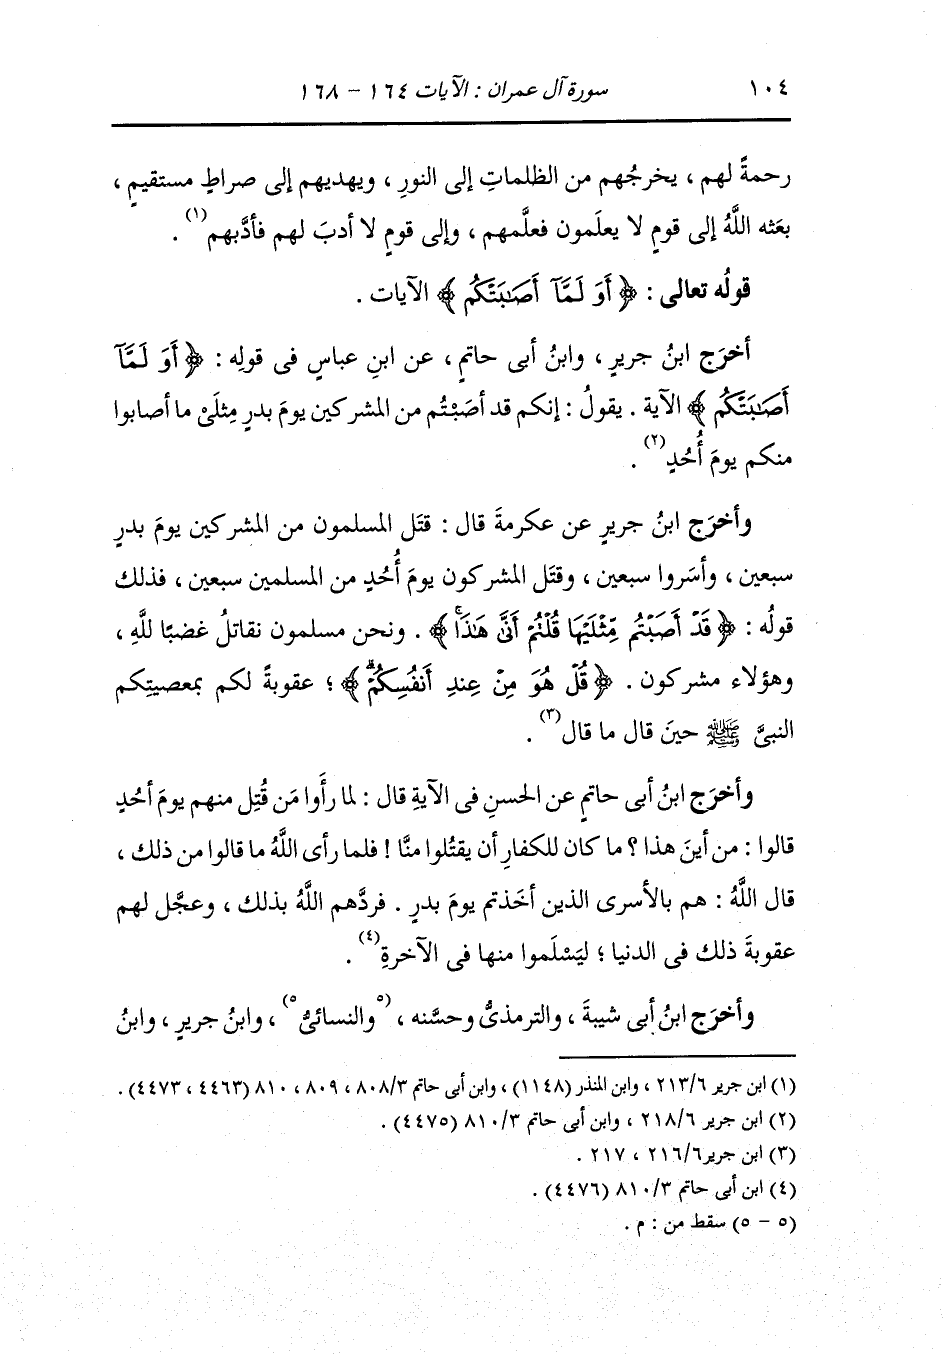 ١٠٤ سورة آل عمران : الآيات ١٦٤ - ١٦٨
رحمةً لهم ، يخرجُهم من الظلماتِ إلى النورِ ، ويهديهم إلى صراطٍ مستقيمٍ ،
بعَثه اللَّهُ إلى قومٍ لا يعلَمون فعلَّمهم ، وإلى قومٍ لا أدبَ لهم فأدَّبهم(١) .
قولُه تعالى : ﴿ أَوَ لَمَّآ أَصَٰبَتْكُم ﴾ الآيات .
أخرَج ابنُ جريرٍ ، وابنُ أبى حاتمٍ ، عن ابنِ عباسٍ فى قولِه : ﴿ أَوَ لَمَّآ
أَصَٰبَتْكُم ﴾ الآية . يقولُ : إنكم قد أصَبْتُم من المشركين يومَ بدرٍ مِثلَىْ ما أصابوا
منكم يومَ أُحُدٍ(٢) .
وأخرَج ابنُ جريرٍ عن عكرمةَ قال : قتَل المسلمون من المشركين يومَ بدرٍ
سبعين ، وأسَروا سبعين ، وقتَل المشركون يومَ أُحُدٍ من المسلمين سبعين ، فذلك
قولُه : ﴿ قَدْ أَصَبْتُم مِّثْلَيْهَا قُلْتُمْ أَنَّىٰ هَٰذَا ﴾ . ونحن مسلمون نقاتلُ غضبًا للَّهِ ،
وهؤلاء مشركون . ﴿ قُلْ هُوَ مِنْ عِندِ أَنفُسِكُمْ ﴾ ؛ عقوبةً لكم بمعصيتِكم
النبىَّ ﷺ حينَ قال ما قال(٣) .
وأخرَج ابنُ أبى حاتمٍ عن الحسنِ فى الآيةِ قال : لما رأَوا مَن قُتِل منهم يومَ أحُدٍ
قالوا : من أينَ هذا ؟ ما كان للكفارِ أن يقتُلوا منَّا ! فلما رأى اللَّهُ ما قالوا من ذلك ،
قال اللَّهُ : هم بالأسرى الذين أخَذتم يومَ بدرٍ . فردَّهم اللَّهُ بذلك ، وعجَّل لهم
عقوبةَ ذلك فى الدنيا ؛ ليَسْلَموا منها فى الآخرةِ(٤) .
وأخرَج ابنُ أبى شيبةَ ، والترمذىُّ وحسَّنه ، (٥والنسائىُّ٥) ، وابنُ جريرٍ ، وابنُ
(١) ابن جرير ٢١٣/٦ ، وابن المنذر (١١٤٨) ، وابن أبى حاتم ٨٠٨/٣ ، ٨٠٩ ، ٨١٠ (٤٤٦٣ ، ٤٤٧٣) .
(٢) ابن جرير ٢١٨/٦ ، وابن أبى حاتم ٨١٠/٣ (٤٤٧٥) .
(٣) ابن جرير ٢١٦/٦ ، ٢١٧ .
(٤) ابن أبى حاتم ٨١٠/٣ (٤٤٧٦) .
(٥ - ٥) سقط من : م .